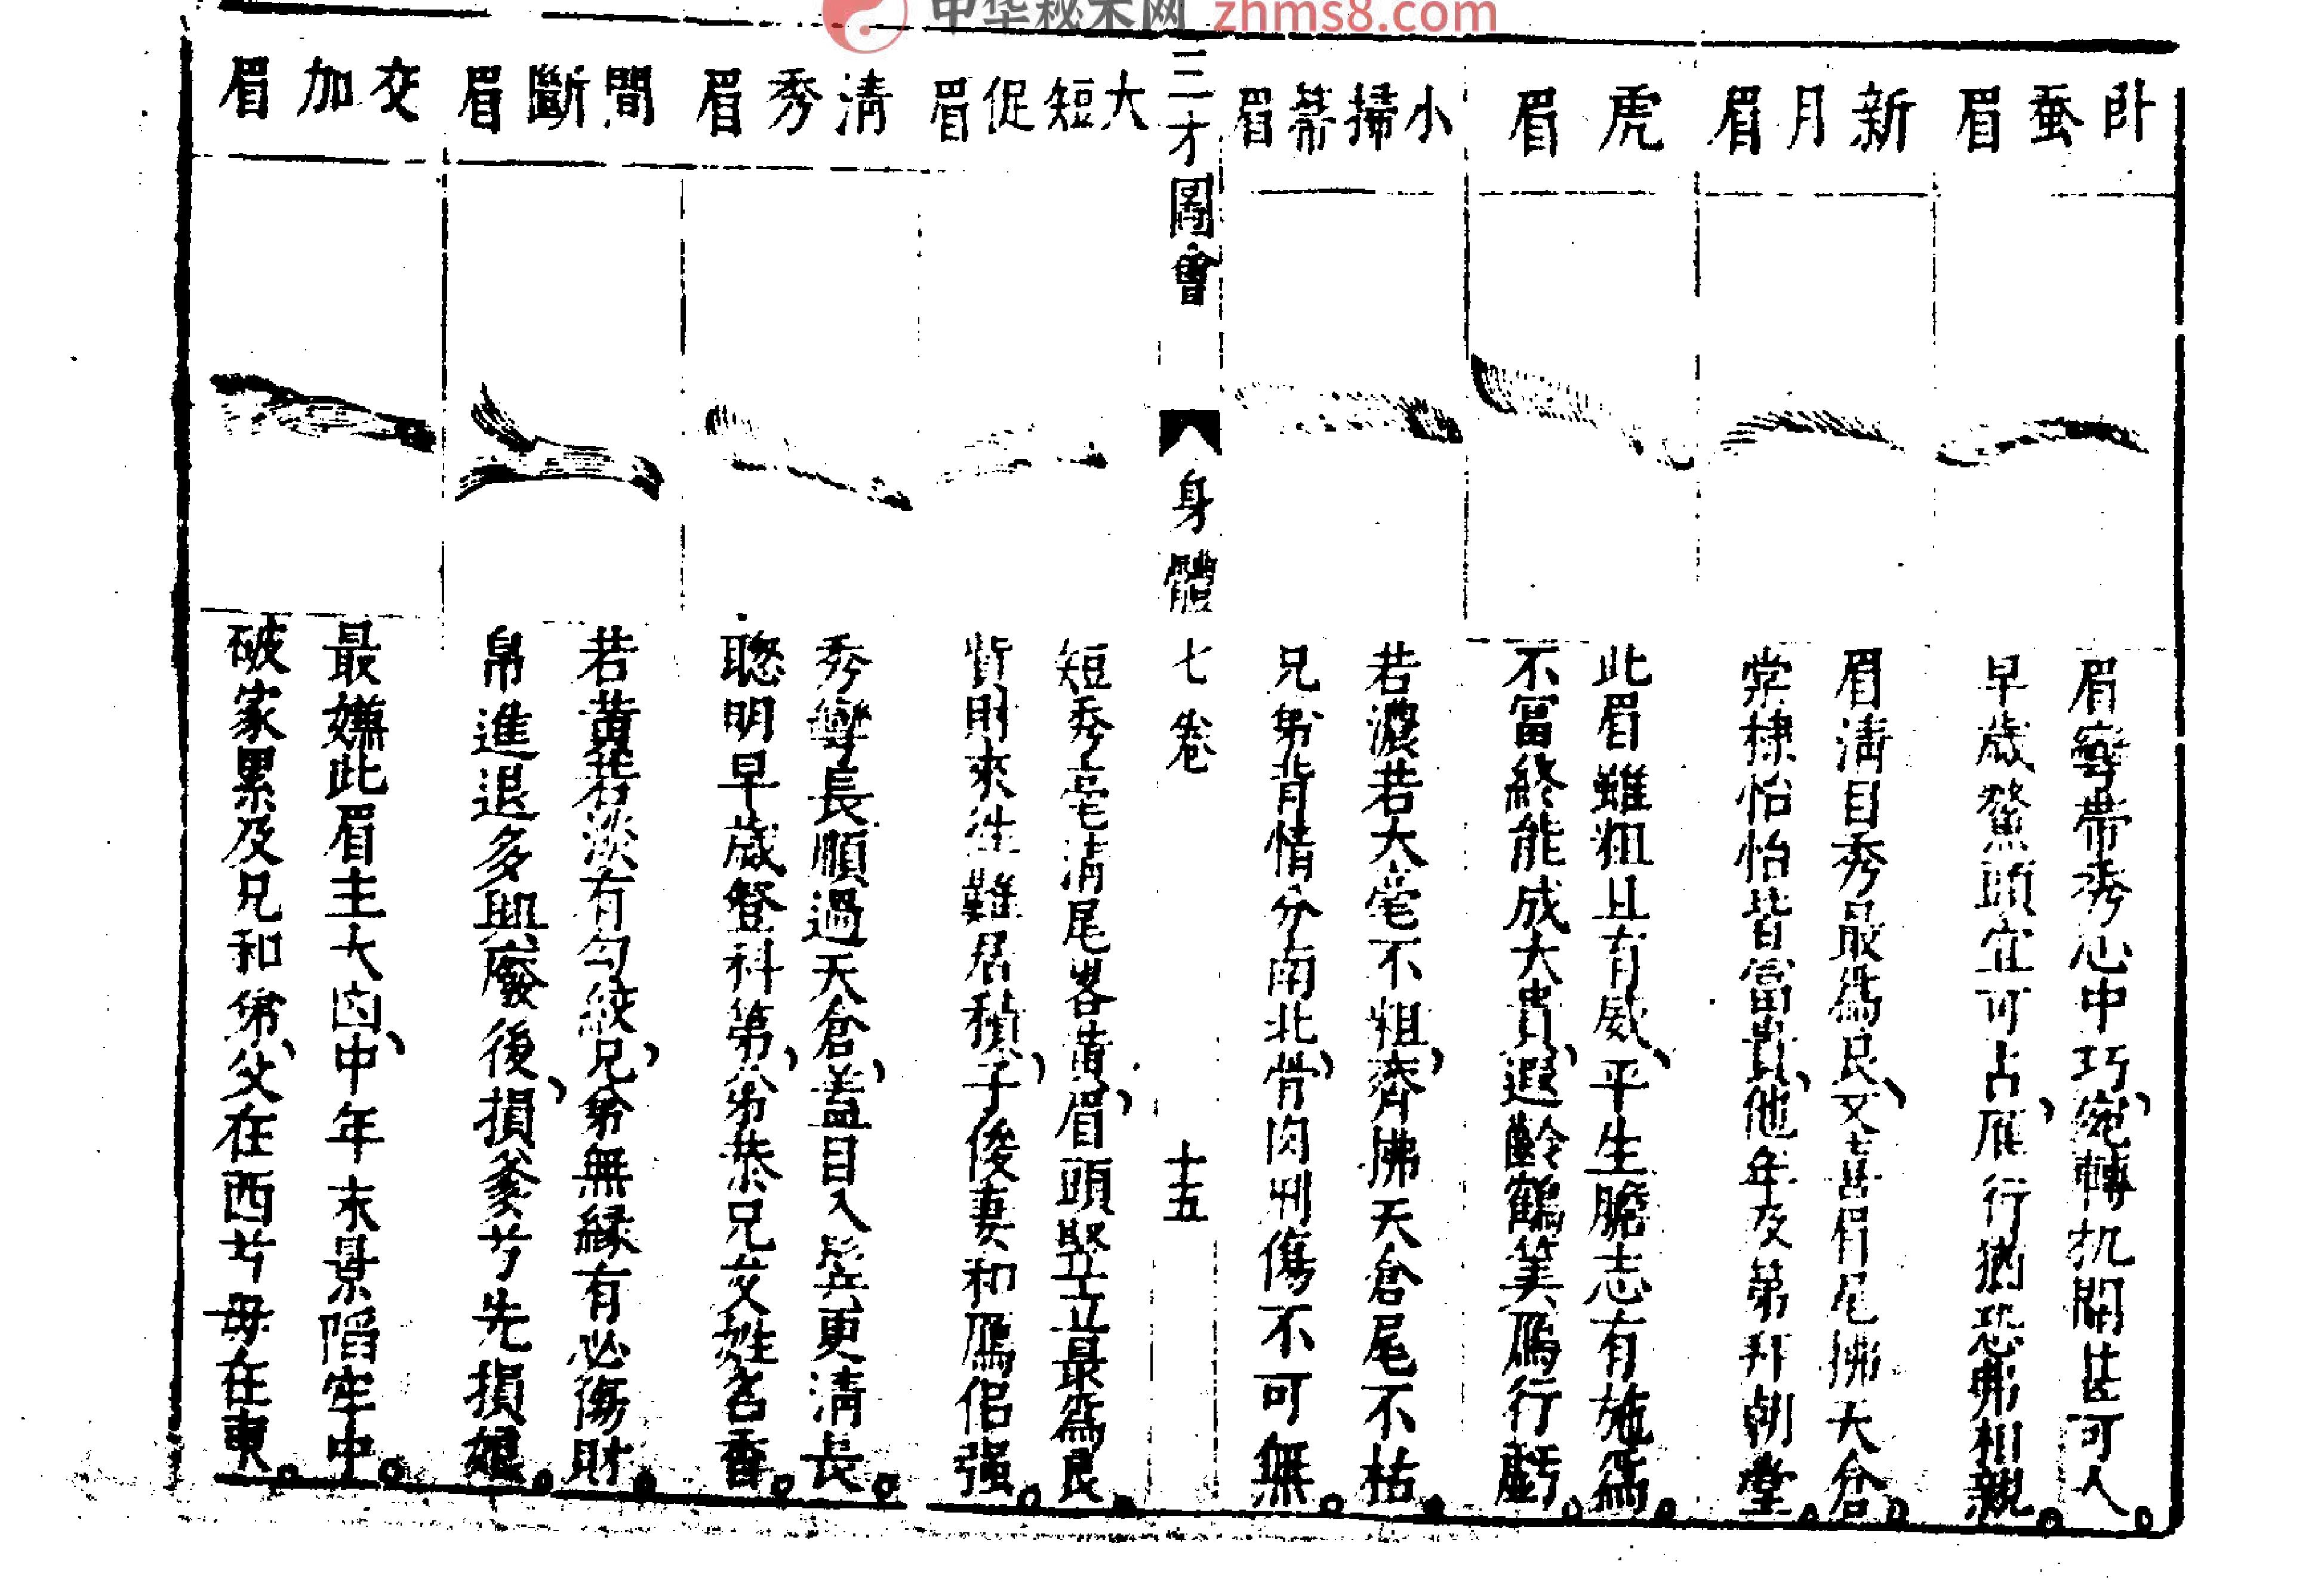 中华秘术网 zhms8.com
臥蚕眉
眉彎帶秀心中巧、宛轉机関甚可人。
早歲鰲頭宜可占、雁行猶恐弗相親。
新月眉
眉清目秀最為良、又喜眉尾拂天倉。
棠棣怡怡皆富貴、他年及第拜朝堂。
虎眉
此眉雖粗且有威、平生膽志有施為。
不富終能成大貴、遐齡鶴筭鴈行虧。
小掃帚眉
若濃若大毫不粗、齊拂天倉尾不枯。
兄弟背情分南北、骨肉刑傷不可無。
三才圖會
身體七卷
十五
大短促眉
短秀毫清尾畧黃、眉頭竪立最為良。
貲財來徃難居積、子俊妻和鴈侶强。
清秀眉
秀彎長順過天倉、盖目入鬂更清長。
聦明早歲登科第、弟恭兄友姓名香。
間斷眉
若黃若淡有勾紋、兄弟無縁有必傷財。
帛進退多興廢後、損爹兮先損娘。
交加眉
最嫌此眉主大凶、中年末景陷牢中。
破家累及兄和弟、父在西兮母在東。